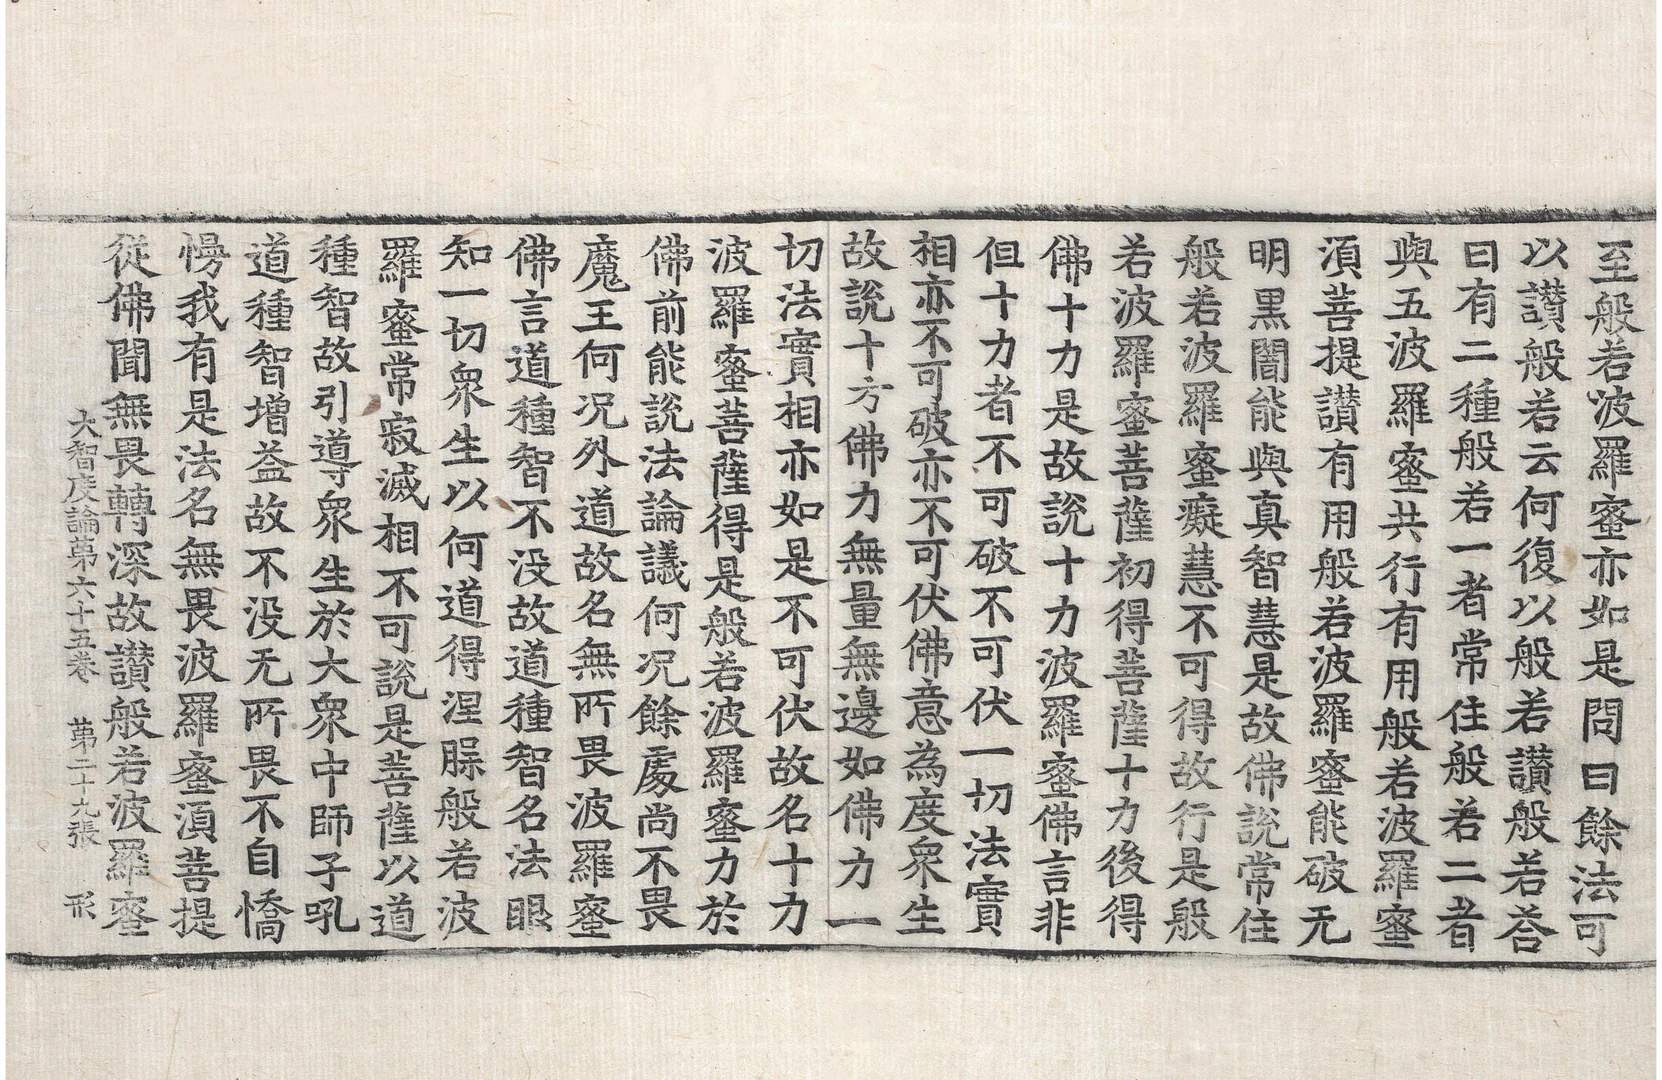 至般若波羅蜜亦如是問曰餘法可
以讚般若云何復以般若讚般若荅
曰有二種般若一者常住般若二者
與五波羅蜜共行有用般若波羅蜜
須菩提讚有用般若波羅蜜能破无
明黑闇能與真智慧是故佛說常住
般若波羅蜜癡慧不可得故行是般
若波羅蜜菩薩初得菩薩十力後得
佛十力是故說十力波羅蜜佛言非
但十力者不可破不可伏一切法實
相亦不可破亦不可伏佛意為度衆生
故說十方佛力無量無邊如佛力一
切法實相亦如是不可伏故名十力
波羅蜜菩薩得是般若波羅蜜力於
佛前能說法論議何況餘處尚不畏
魔王何况外道故名無所畏波羅蜜
佛言道種智不没故道種智名法眼
知一切衆生以何道得涅槃般若波
羅蜜常寂滅相不可說是菩薩以道
種智故引導衆生於大衆中師子吼
道種智增益故不没无所畏不自憍
慢我有是法名無畏波羅蜜須菩提
從佛聞無畏轉深故讚般若波羅蜜
大智度論苐六十五卷 苐二十九張 形